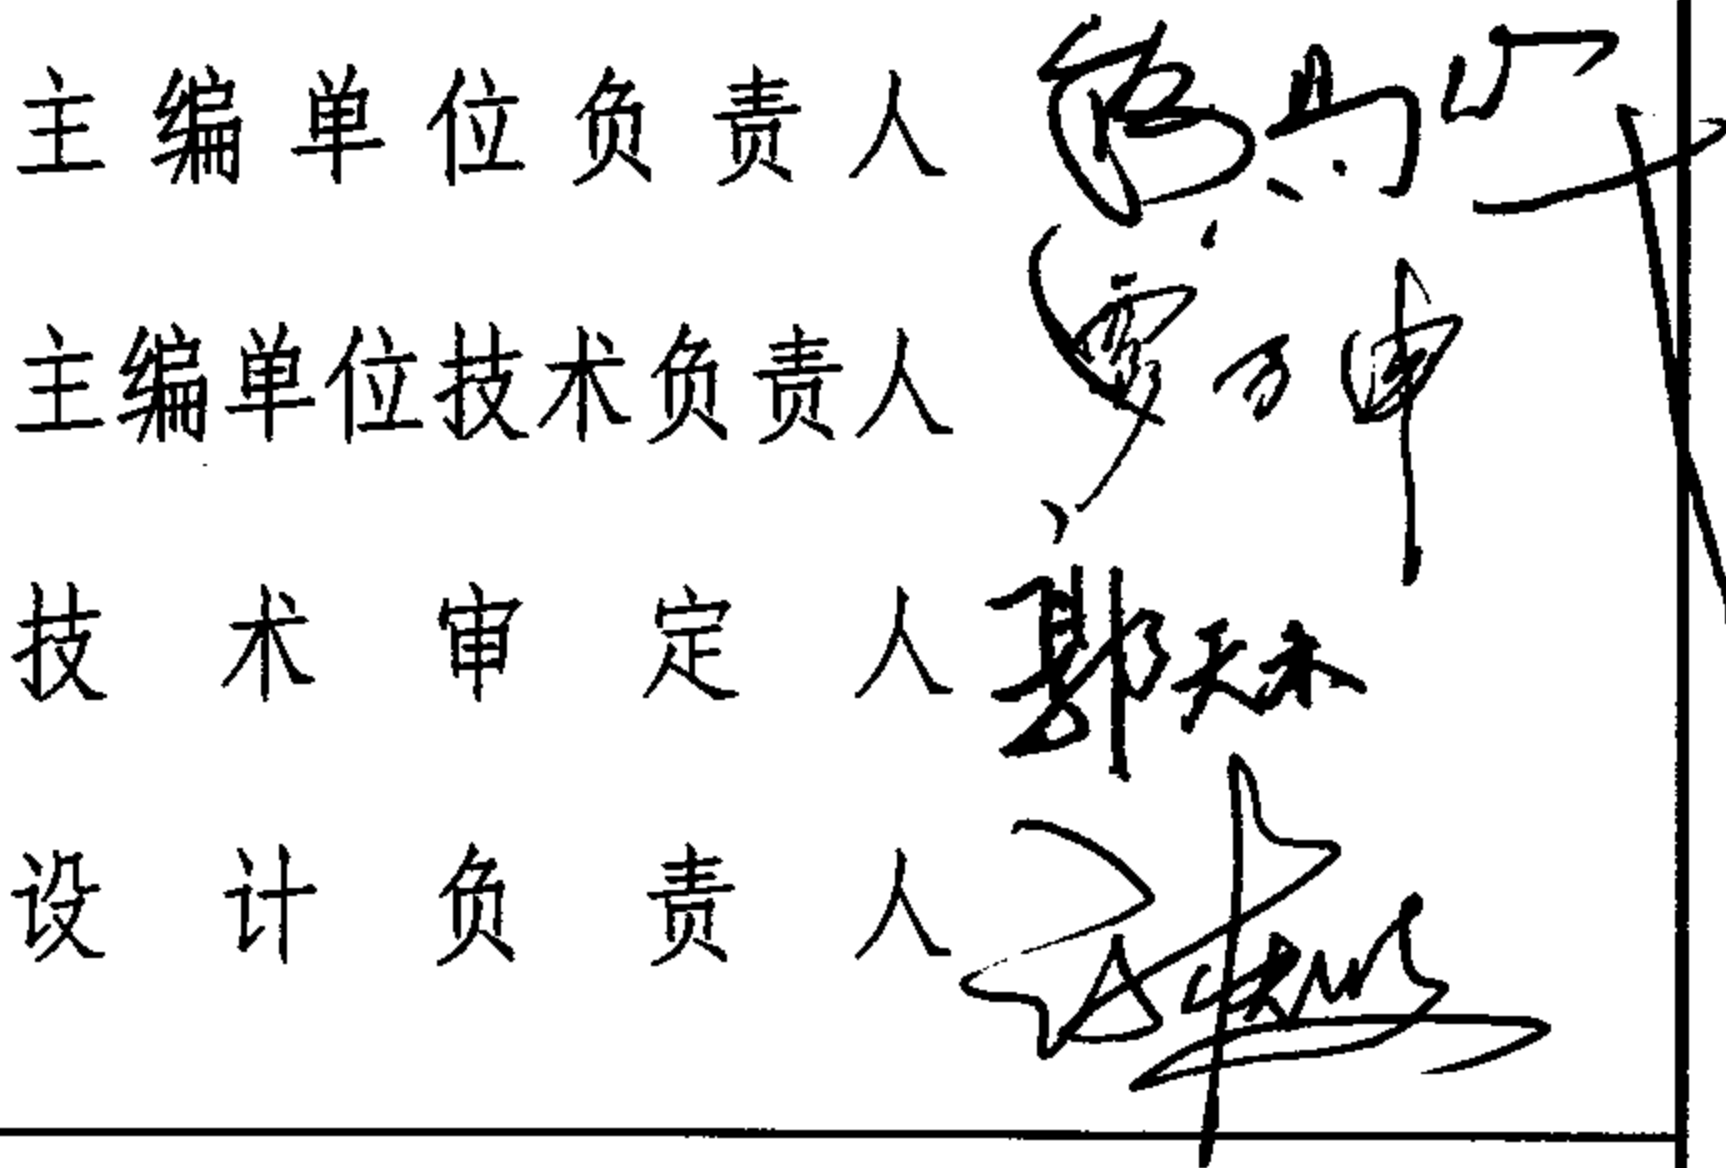 主编单位负责人
主编单位技术负责人
技术审定人 郭天木
设计负责人